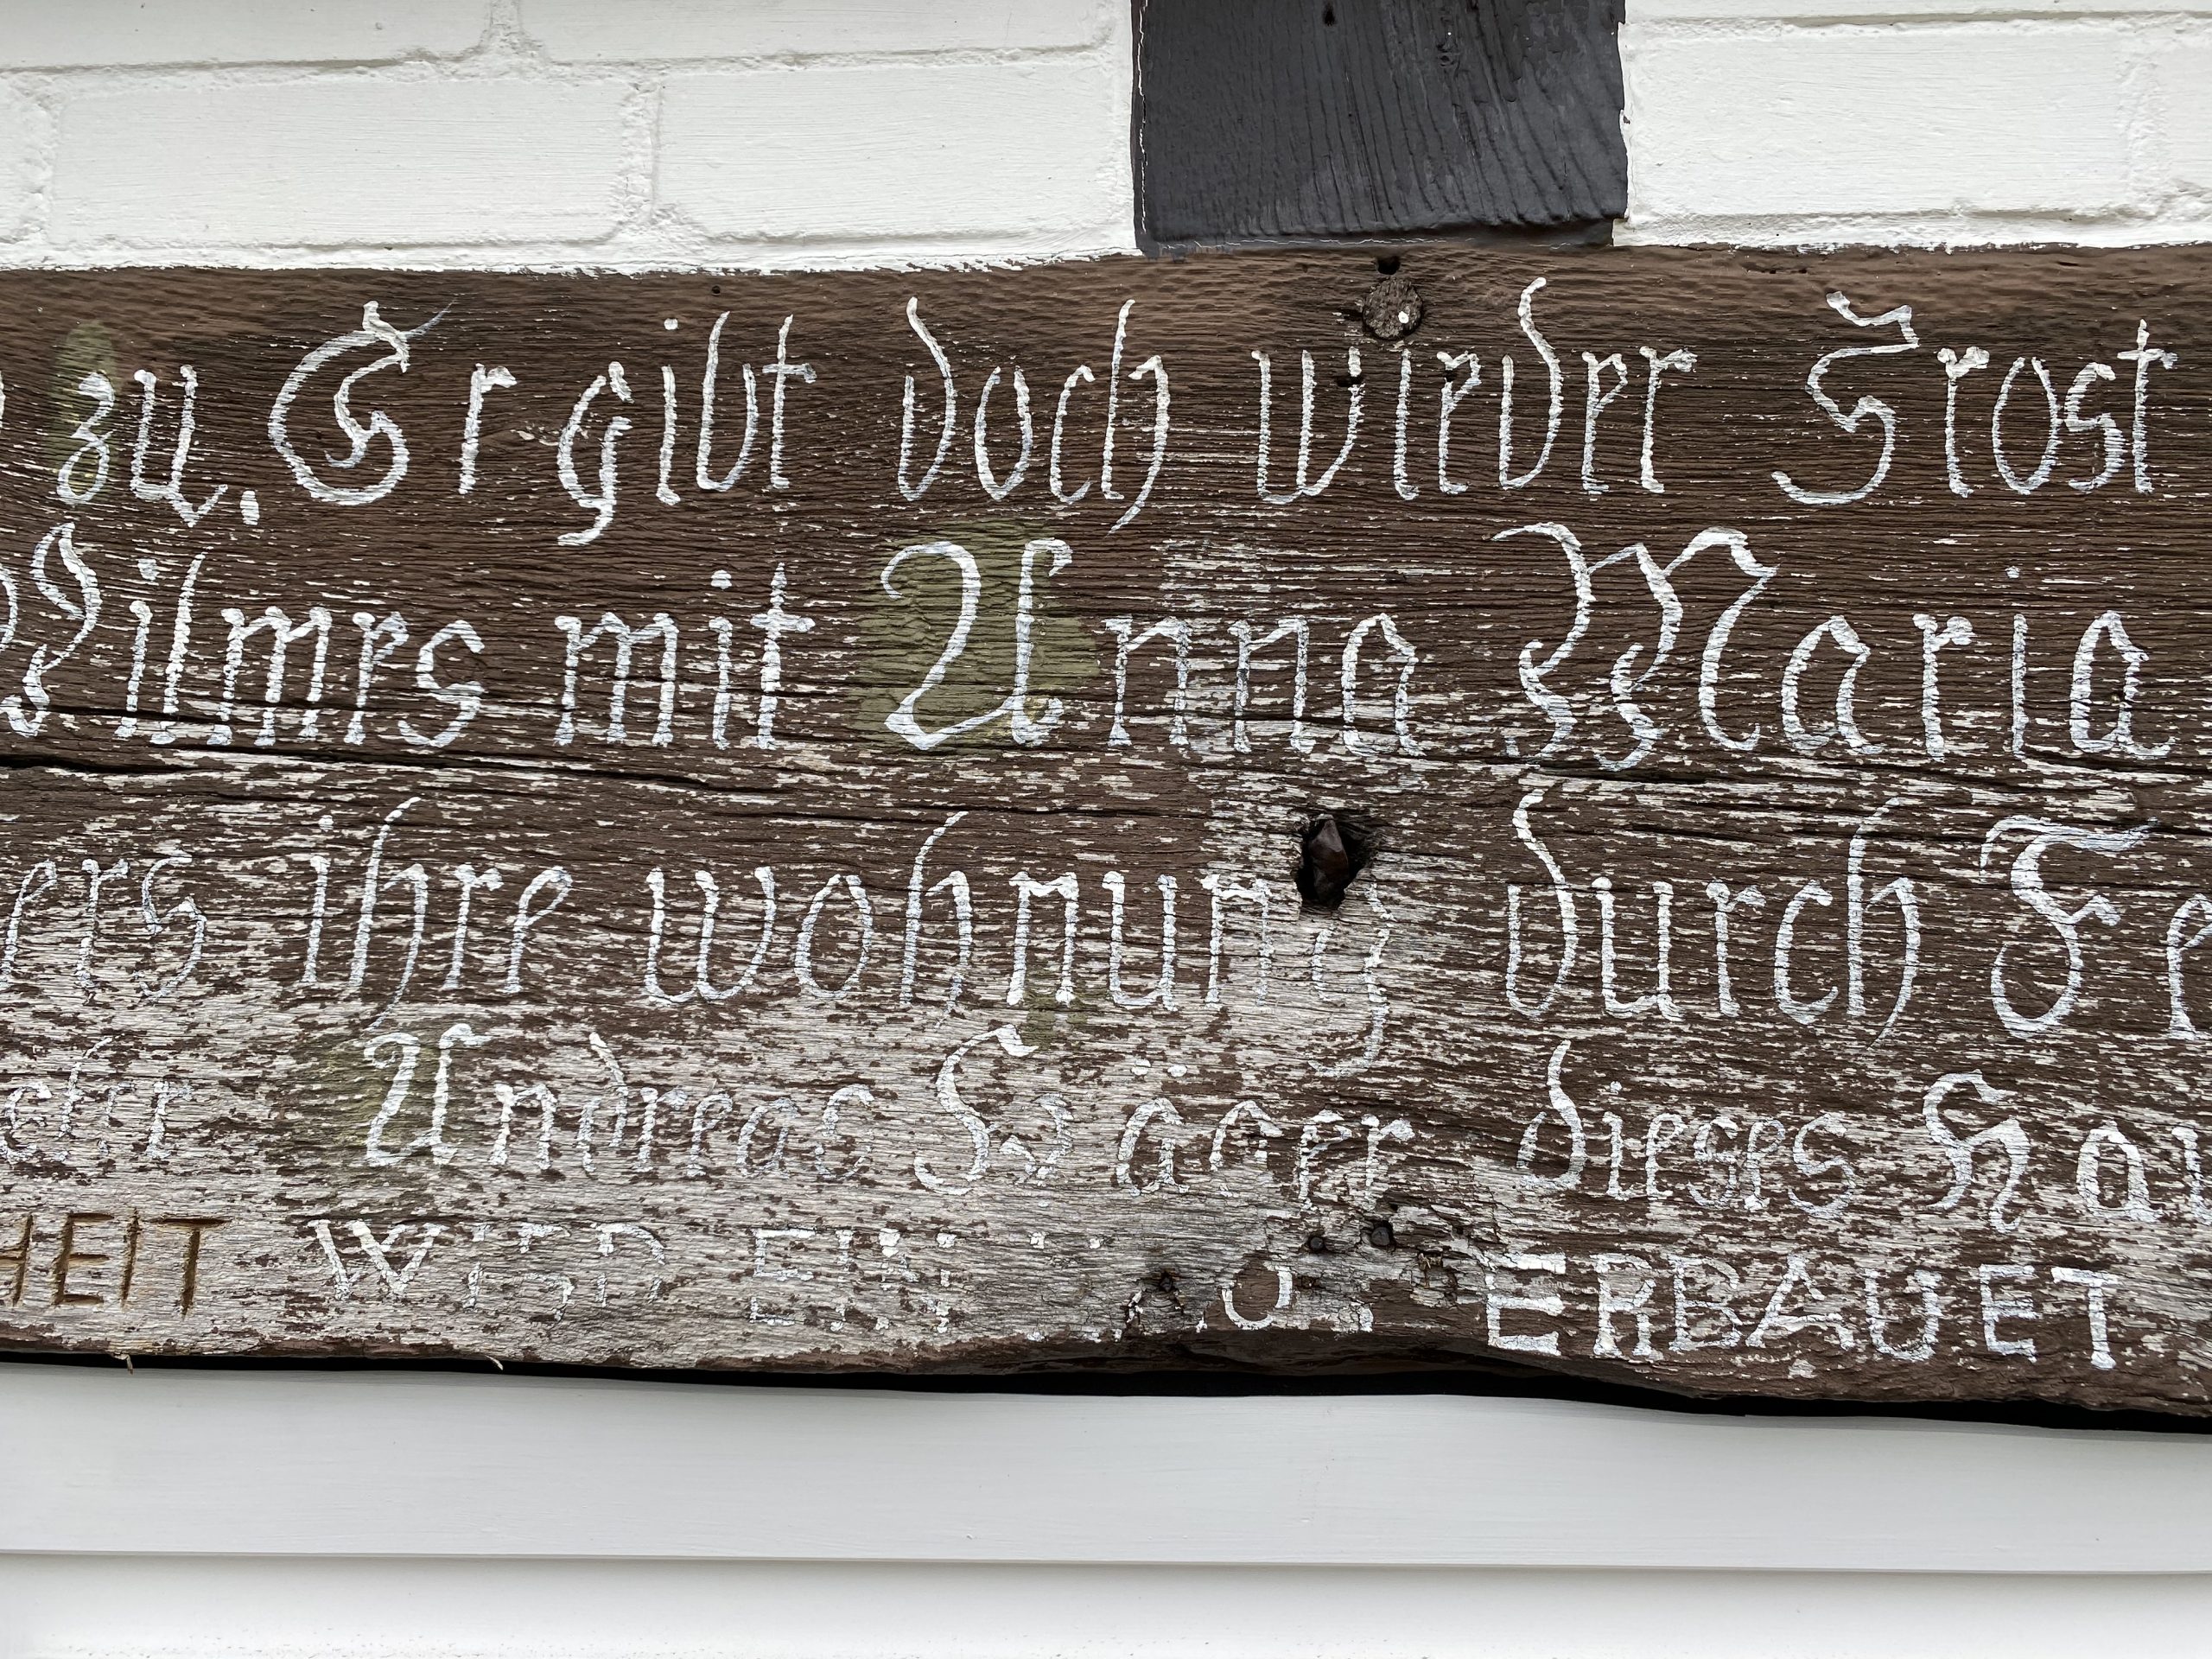 zu. Er gibt doch wieder Trost
Wilmes mit Anna Maria
ers ihre wohnung durch Fe
Andreas Jäger dieses Hau
HEIT WIRD EIN ERBAUET